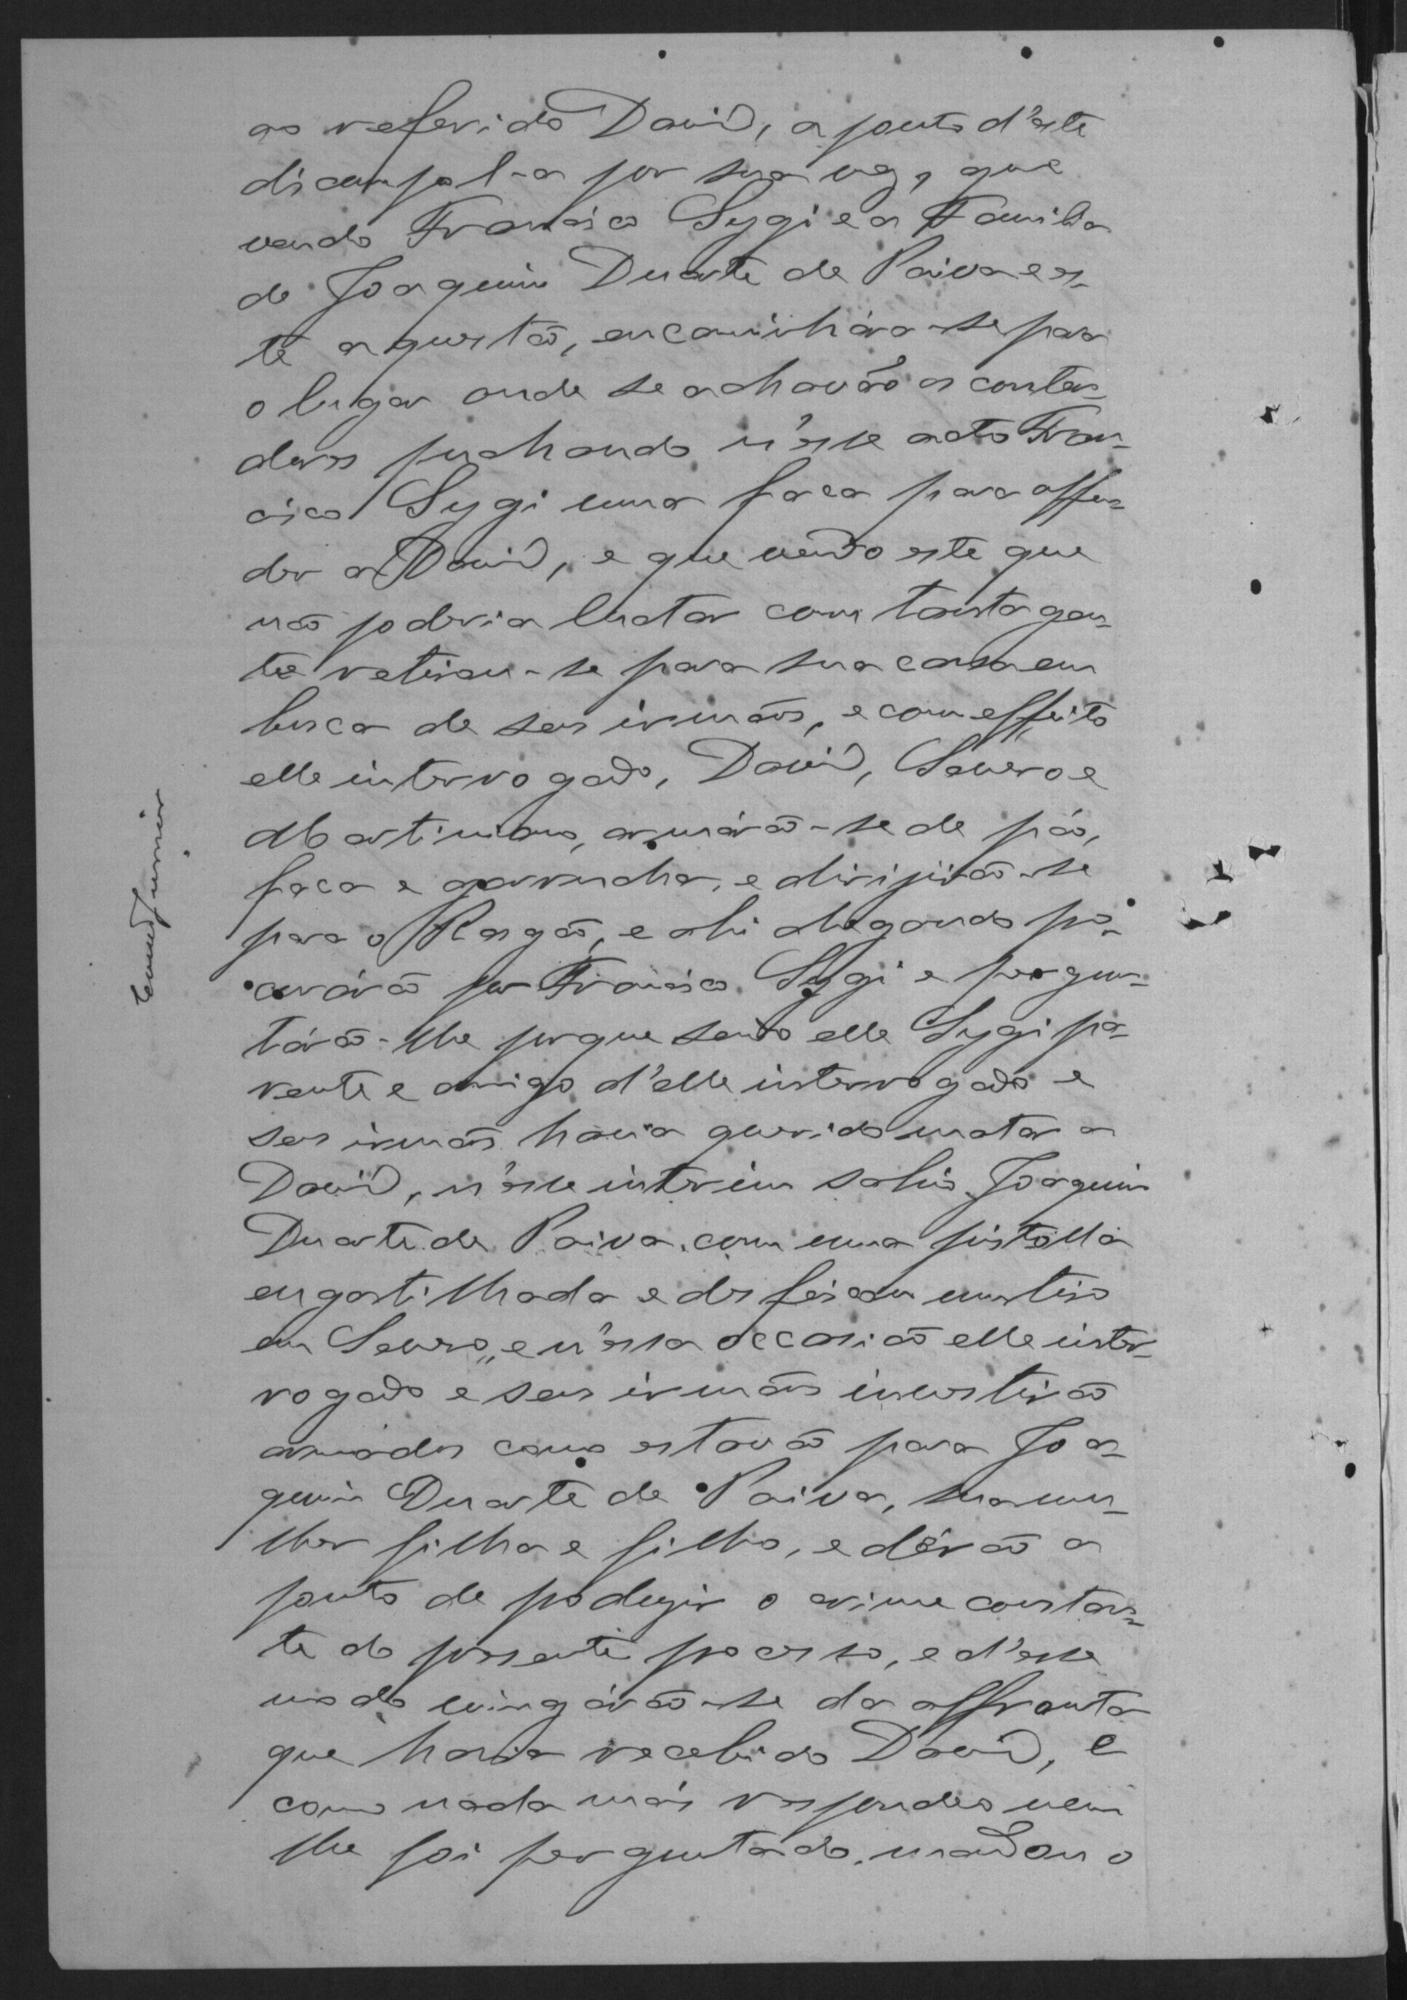 ao referido David, a ponto d'este
discompol-a por sua vez, que
vendo Francisco Sygi e a Familia
de Joaquim Duarte de Paiva es-
te a questão, encaminhára-se para
o lugar onde se achavão os conten-
dores puchando n'esse acto Fran-
cisco Sygi uma faca para offen-
der a David, e que vendo este que
não poderia luctar com tanta gen-
te retirou-se para sua casa em
busca de seus irmãos, e com effeito
elle interrogado, David, Severo e
Martiniano, armárão-se de páo,
faca e garrucha, e dirijirão-se
para o Rasgão, e ahi chegando pro-
curárão por Francisco Sygi e pergun-
tárão-lhe porque sendo elle Sygi pa-
rente e amigo d'elle interrogado e
seus irmãos havia querido matar a
David, n'esse interim sahio Joaquim
Duarte de Paiva com uma pistolla
engatilhada e desfeixou um tiro
em Severo, e n'essa occasião elle inter-
rogado e seus irmãos investirão
armados como estavão para Joa-
quim Duarte de Paiva, sua mu-
lher filha e filho, e dérão a
ponto de produzir o crime constan-
te do presente processo, e d'esse
modo vingárão-se da affronta
que havia recebido David, e
como nada mais respondeo nem
lhe foi perguntado, mandou o
Junior